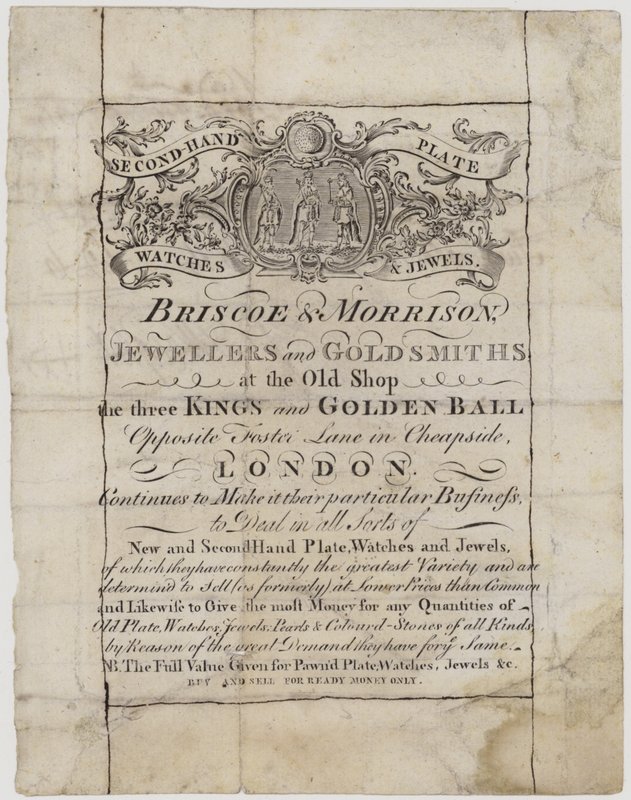 SECOND-HAND PLATE
WATCHES & JEWELS.
BRISCOE & MORRISON,
JEWELLERS and GOLDSMITHS
at the Old Shop
the three KINGS and GOLDEN BALL
Opposite Foster Lane in Cheapside,
LONDON.
Continues to Make it their particular Buſineſs,
to Deal in all Sorts of
New and Second Hand Plate, Watches and Jewels,
of which they have constantly the greatest Variety and are
determind to Sell (as formerly) at Lower Prices than Common
and Likewiſe to Give the moſt Money for any Quantities of
Old Plate, Watches, Jewels, Pearls & Colourd-Stones of all Kinds,
by Reason of the great Demand they have for yͤ Same.
NB. The Full Value Given for Pawn'd Plate, Watches, Jewels &c.
BUY AND SELL FOR READY MONEY ONLY.